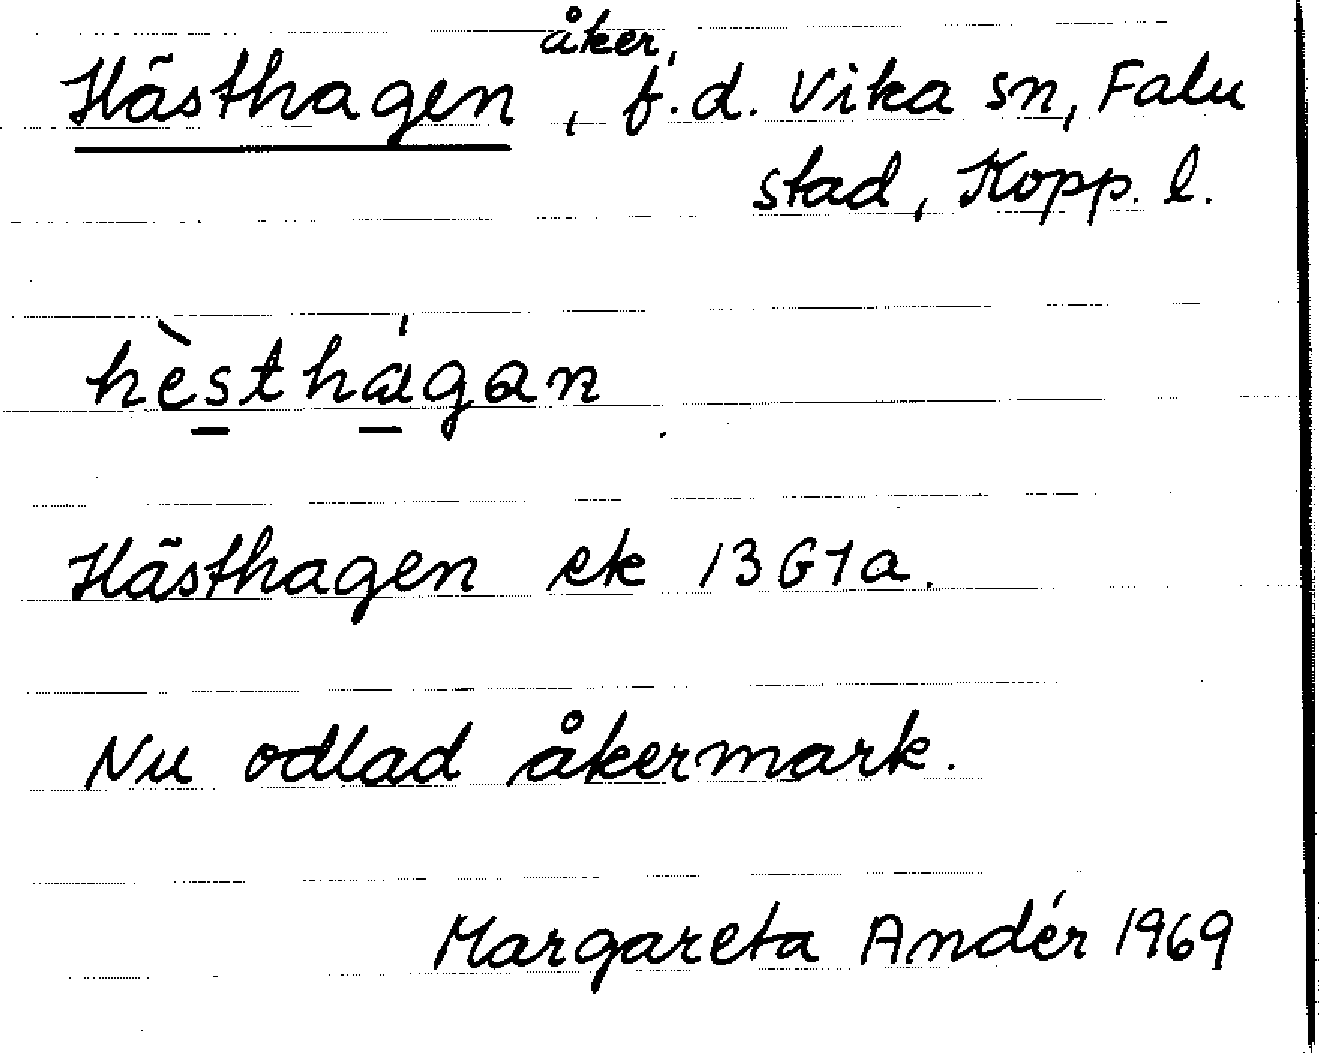 Hästhagen, åker, f.d. Vika sn, Falu
stad, Kopp. l.
hèsthágan
Hästhagen ek 13G1a.
Nu odlad åkermark.
Margareta Andér 1969